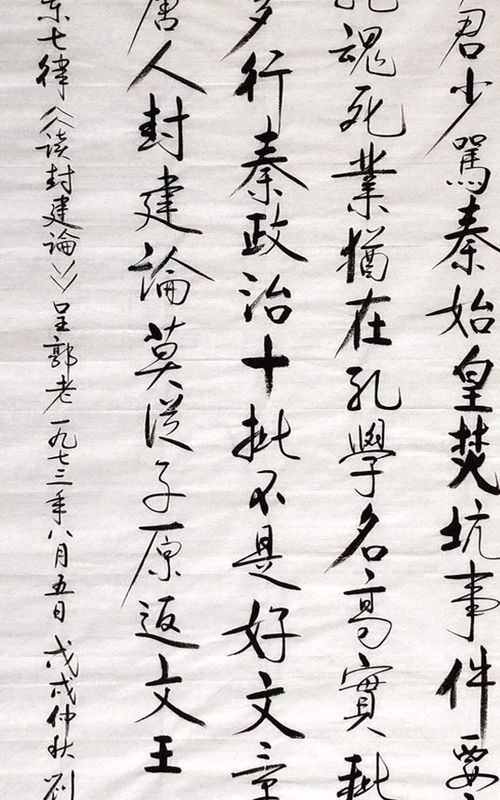 君少駡秦始皇焚坑事件要
魂死業猶在孔學名高實秕
多行秦政治十批不是好文章
唐人封建論莫從子原返文王
东七律《读封建論》呈郭老一九七三年八月五日戊戌仲秋劉